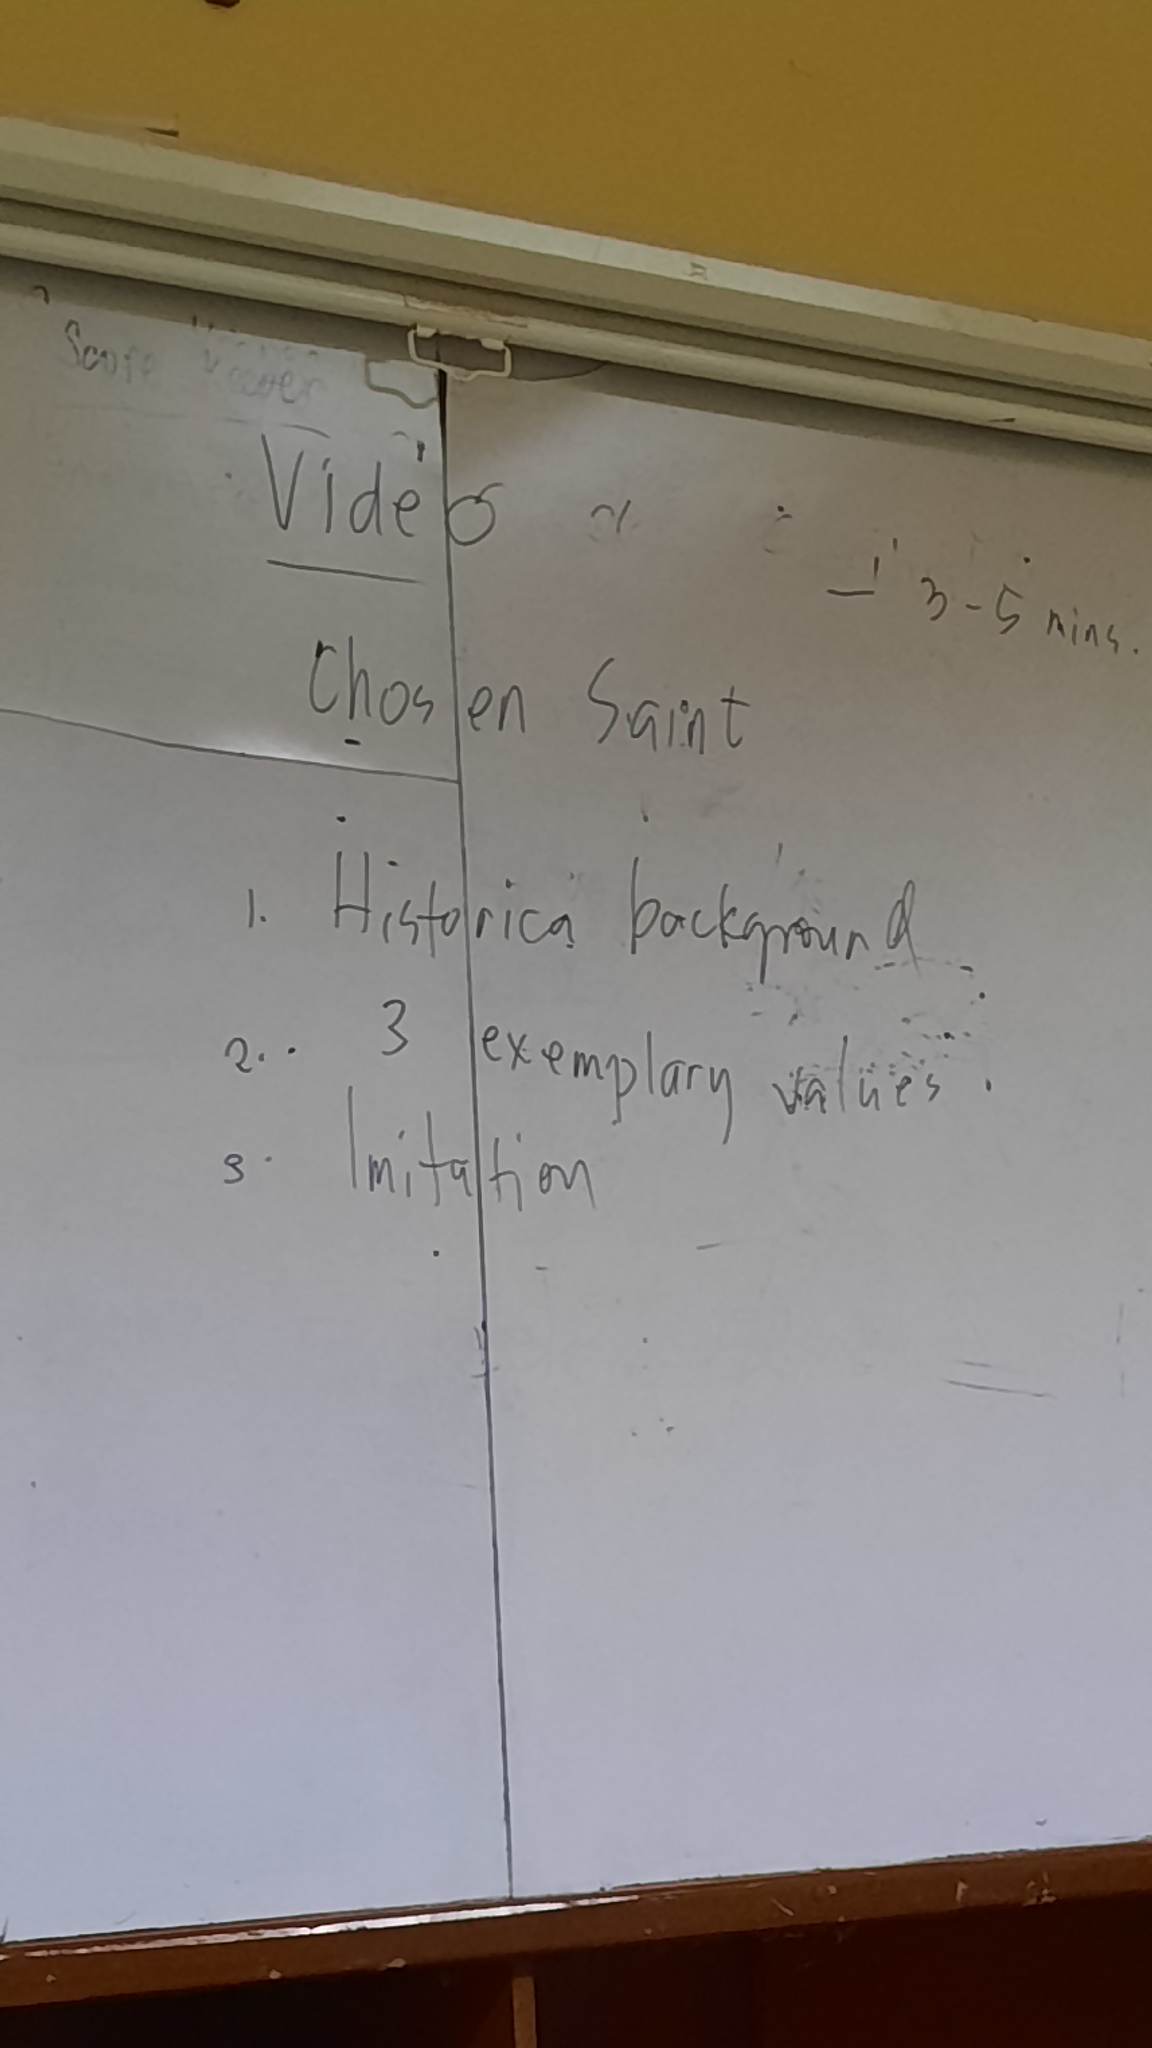 Video
3-5 mins.
Chosen Saint
1. Historica background
2. 3 exemplary values.
3. Imitation